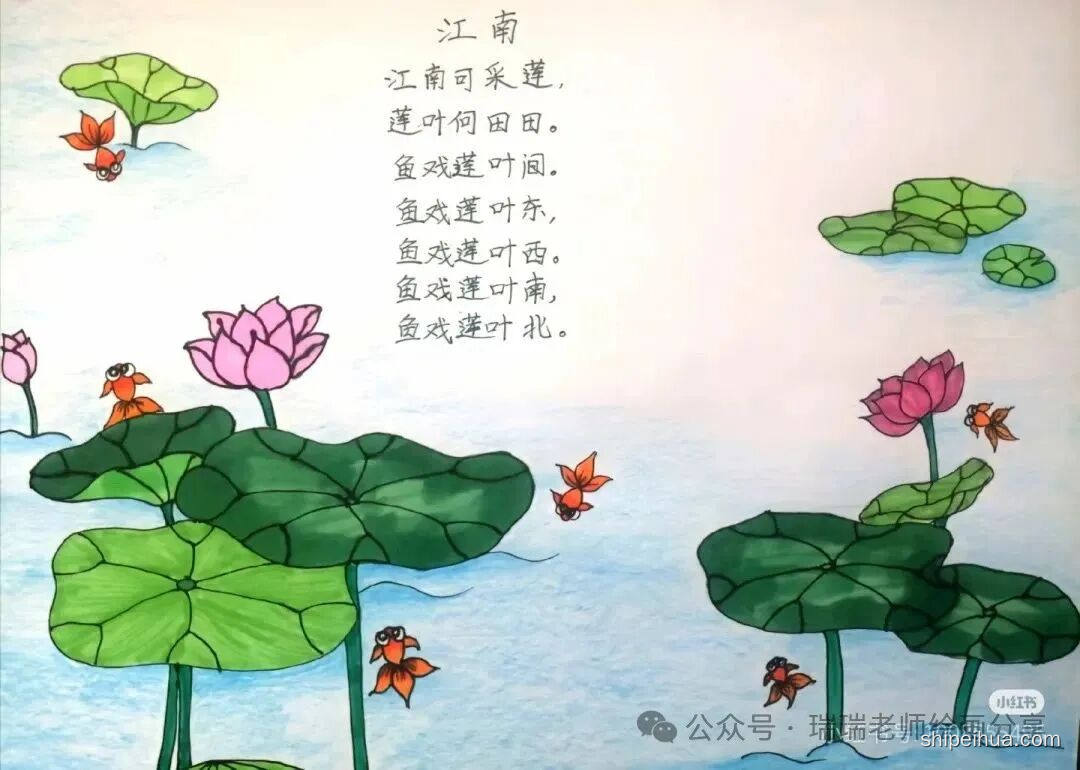 江南
江南可采莲,
莲叶何田田。
鱼戏莲叶间。
鱼戏莲叶东,
鱼戏莲叶西。
鱼戏莲叶南,
鱼戏莲叶北。
小红书
公众号·瑞瑞老师绘画分享
shipeihua.com